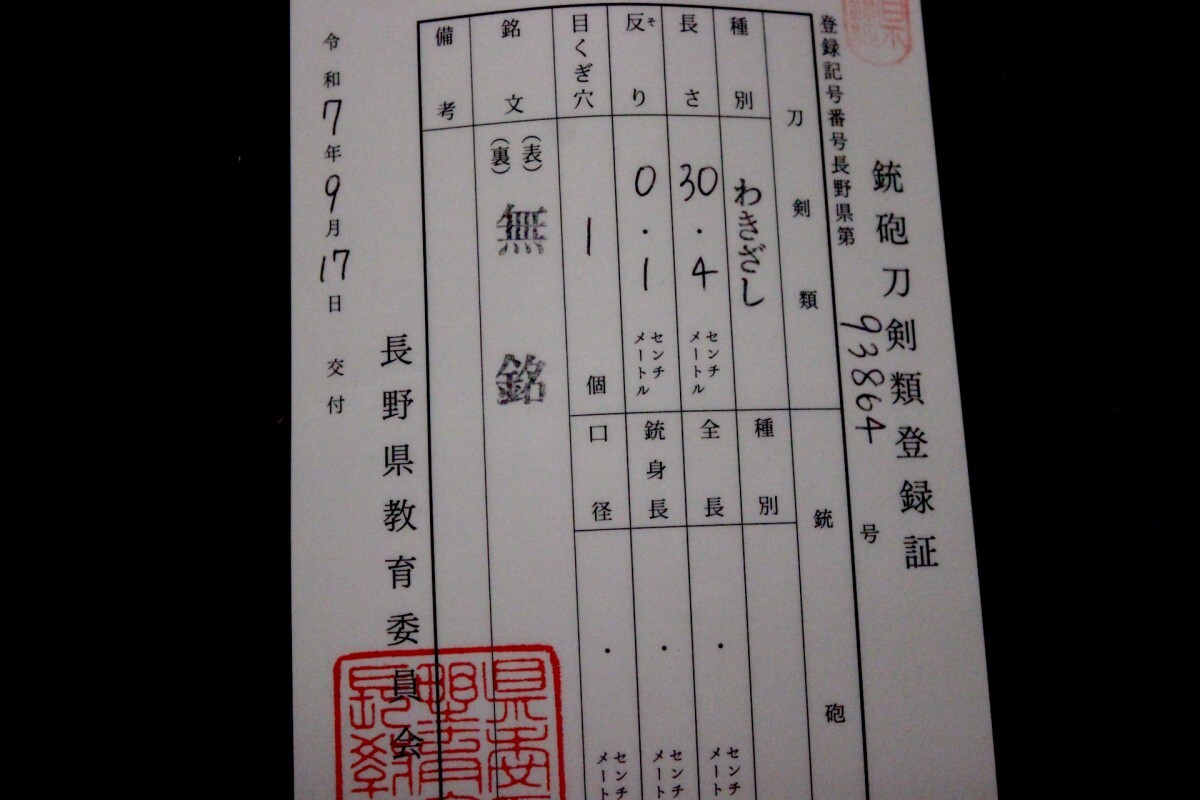 銃砲刀剣類登録証
登録記号番号長野県第 93864 号
刀剣類
種別 わきざし
長さ 30.4 センチメートル
反り そ 0.1 センチメートル
目くぎ穴 1 個
銘文 (表) (裏) 無銘
備考
銃砲
種別
全長 ・ センチメート
銃身長 ・ センチメート
口径 ・ センチメート
令和7年9月17日 交付
長野県教育委員会